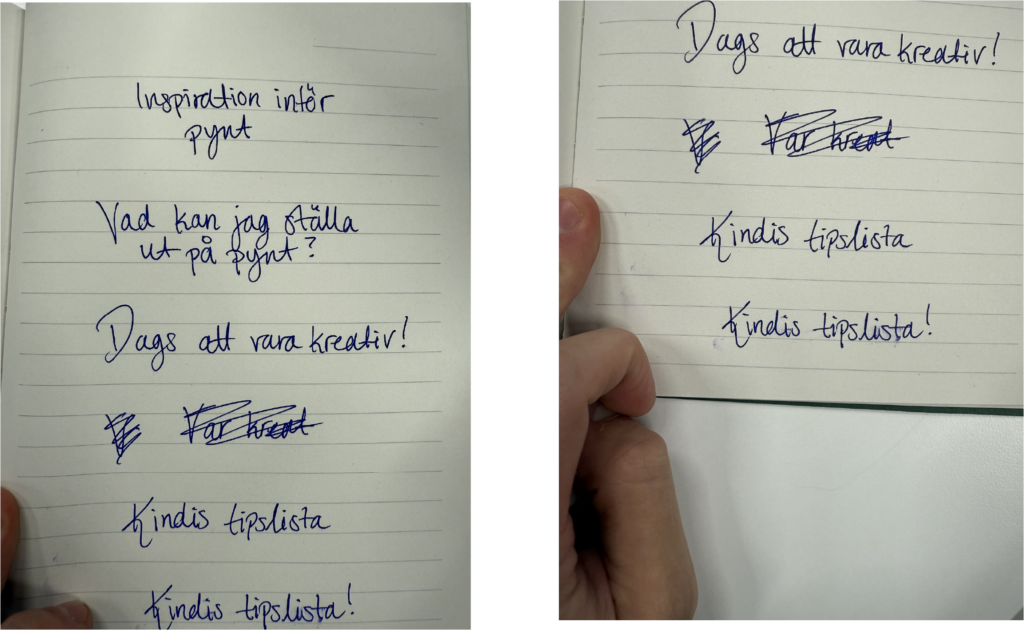 Inspiration inför
pynt
Vad kan jag ställa
ut på pynt?
Dags att vara kreativ!
Kindis tipslista
Kindis tipslista!
Dags att vara kreativ!
Kindis tipslista
Kindis tipslista!